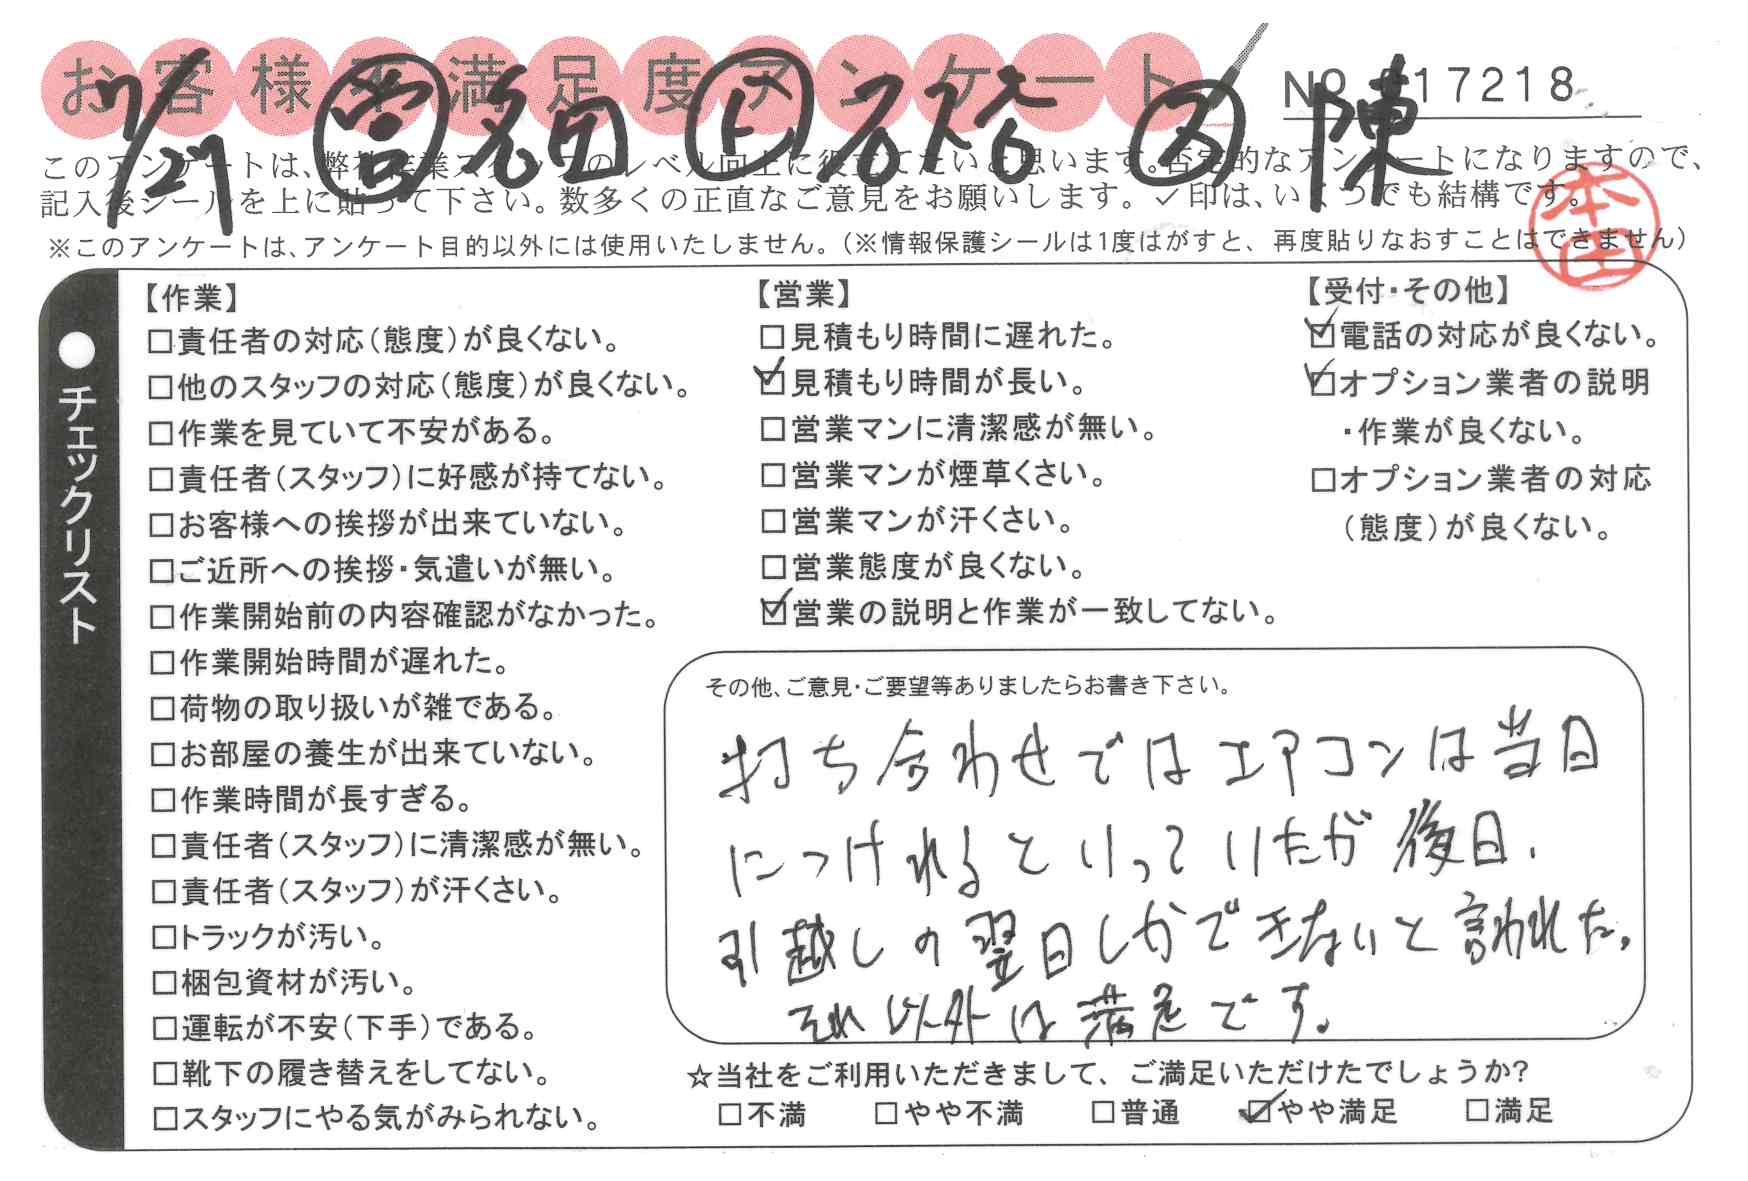 お客様不満足度アンケート
No 017218
7/29 営 名田 上 石橋 ヌ 陳
このアンケートは、弊社作業スタッフのレベル向上に役立てたいと思います。否定的なアンケートになりますので、
記入後シールを上に貼って下さい。数多くの正直なご意見をお願いします。✓印は、いくつでも結構です。
本田
※このアンケートは、アンケート目的以外には使用いたしません。（※情報保護シールは1度はがすと、再度貼りなおすことはできません）
●チェックリスト
【作業】
□責任者の対応（態度）が良くない。
□他のスタッフの対応（態度）が良くない。
□作業を見ていて不安がある。
□責任者（スタッフ）に好感が持てない。
□お客様への挨拶が出来ていない。
□ご近所への挨拶・気遣いが無い。
□作業開始前の内容確認がなかった。
□作業開始時間が遅れた。
□荷物の取り扱いが雑である。
□お部屋の養生が出来ていない。
□作業時間が長すぎる。
□責任者（スタッフ）に清潔感が無い。
□責任者（スタッフ）が汗くさい。
□トラックが汚い。
□梱包資材が汚い。
□運転が不安（下手）である。
□靴下の履き替えをしてない。
□スタッフにやる気がみられない。
【営業】
□見積もり時間に遅れた。
☑見積もり時間が長い。
□営業マンに清潔感が無い。
□営業マンが煙草くさい。
□営業マンが汗くさい。
□営業態度が良くない。
☑営業の説明と作業が一致してない。
【受付・その他】
☑電話の対応が良くない。
☑オプション業者の説明
・作業が良くない。
□オプション業者の対応
（態度）が良くない。
その他、ご意見・ご要望等ありましたらお書き下さい。
打ち合わせではエアコンは当日
につけれるといっていたが後日、
引越しの翌日しかできないと言われた。
それ以外は満足です。
☆当社をご利用いただきまして、ご満足いただけたでしょうか?
□不満 □やや不満 □普通 ☑やや満足 □満足